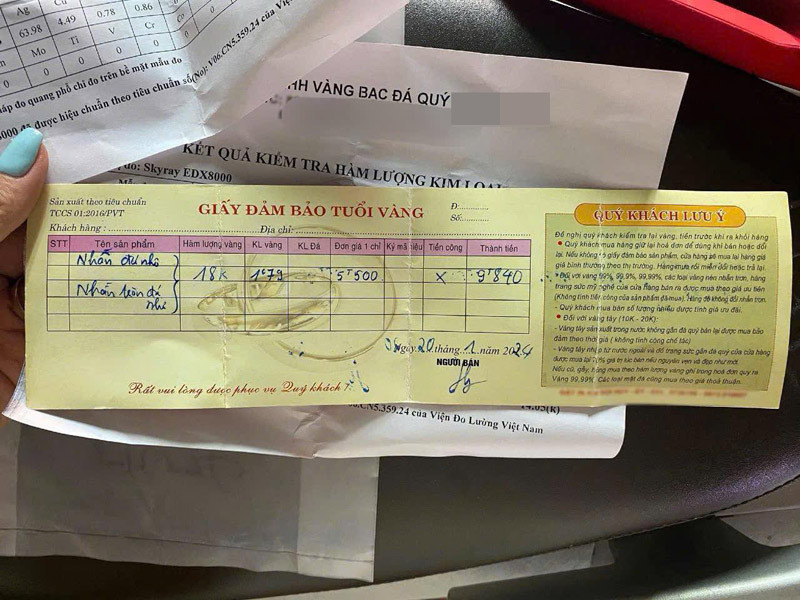 Ag
63.98 4.49 0.78 0.86
Mo Ti V Cr
0 0 0 0
pháp đo quang phổ chỉ đo trên bề mặt mẫu đo
được hiệu chuẩn theo tiêu chuẩn số(No): V06.CN5.359.24 của Viện
VÀNG BẠC ĐÁ QUÝ
KẾT QUẢ KIỂM TRA HÀM LƯỢNG KIM LOẠI
đo: Skyray EDX8000
Sản xuất theo tiêu chuẩn
TCCS 01:2016/PVT
GIẤY ĐẢM BẢO TUỔI VÀNG
Đ:
Số:
Khách hàng : Địa chỉ:
STT Tên sản phẩm Hàm lượng vàng KL vàng KL Đá Đơn giá 1 chỉ Ký mã hiệu Tiền công Thành tiền
Nhẫn đá nhỏ
18K 1c79 5t500 x 9t840
Nhẫn tròn đá
nhỏ
Ngày 20 tháng 1 năm 2024
NGƯỜI BÁN
Rất vui lòng được phục vụ Quý khách !
QUÝ KHÁCH LƯU Ý
Đề nghị quý khách kiểm tra lại vàng, tiền trước khi ra khỏi hàng
• Quý khách mua hàng giữ lại hoá đơn để dùng khi bán hoặc đổi
lại. Nếu không có giấy đảm bảo sản phẩm, cửa hàng sẽ mua lại hàng theo
giá bình thường theo thị trường. Hàng mua rồi miễn đổi hoặc trả lại.
• Đối với vàng 99%, 99.9%, 99,99%, các loại vàng nén nhẫn trơn, hàng
trang sức mỹ nghệ của cửa hàng bán ra được mua theo giá ưu tiên
(Không tính tiền công của sản phẩm đã mua). Hàng đổ không đổi nhẫn trơn.
- Quý khách mua bán số lượng nhiều được tính giá ưu đãi.
• Đối với vàng tây (10K - 20K):
- Vàng tây sản xuất trong nước không gắn đá quý bán lại được mua bảo
đảm theo thời giá ( không tính công chế tác)
- Vàng tây nhập từ nước ngoài và đồ trang sức gắn đá quý của cửa hàng
được mua lại 70% giá trị tài bán nếu nguyên vẹn và đẹp như mới.
Nếu cũ, gẫy, hỏng mua theo hàm lượng vàng ghi trong hoá đơn quy ra
Vàng 99,99%. Các loại mặt đá nhũng mua theo giá thoả thuận.
14.05(k)
.CN5.359.24 của Viện Đo Lường Việt Nam